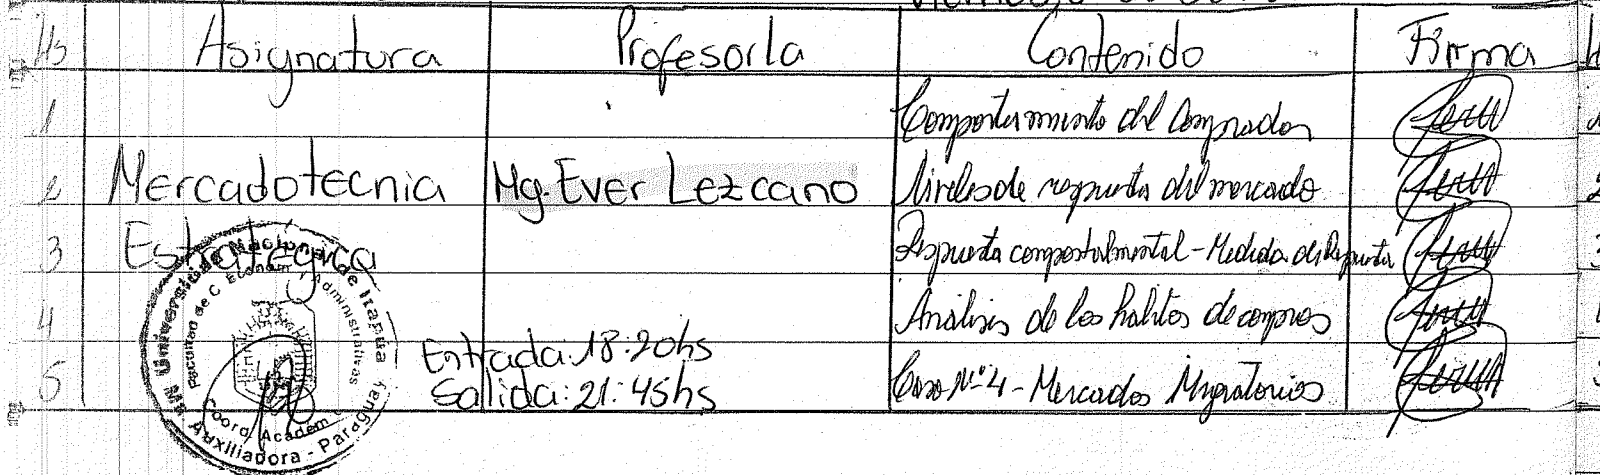 Hs Asignatura Profesor/a Contenido Firma
1 Comportamiento del Comprador
2 Mercadotecnia Mg. Ever Lezcano Niveles de respuesta del mercado
3 Estratégica Respuesta comportalmental - Medida de Respuesta
4 Análisis de los habitos de compras
Entrada: 18:20hs
5 Salida: 21:45hs Caso Nº 4 - Mercados Migratorios
Universidad Nacional de Itapúa
Facultad de C. Económ y Administrativas
Coord. Academ
Mª Auxiliadora - Paraguay